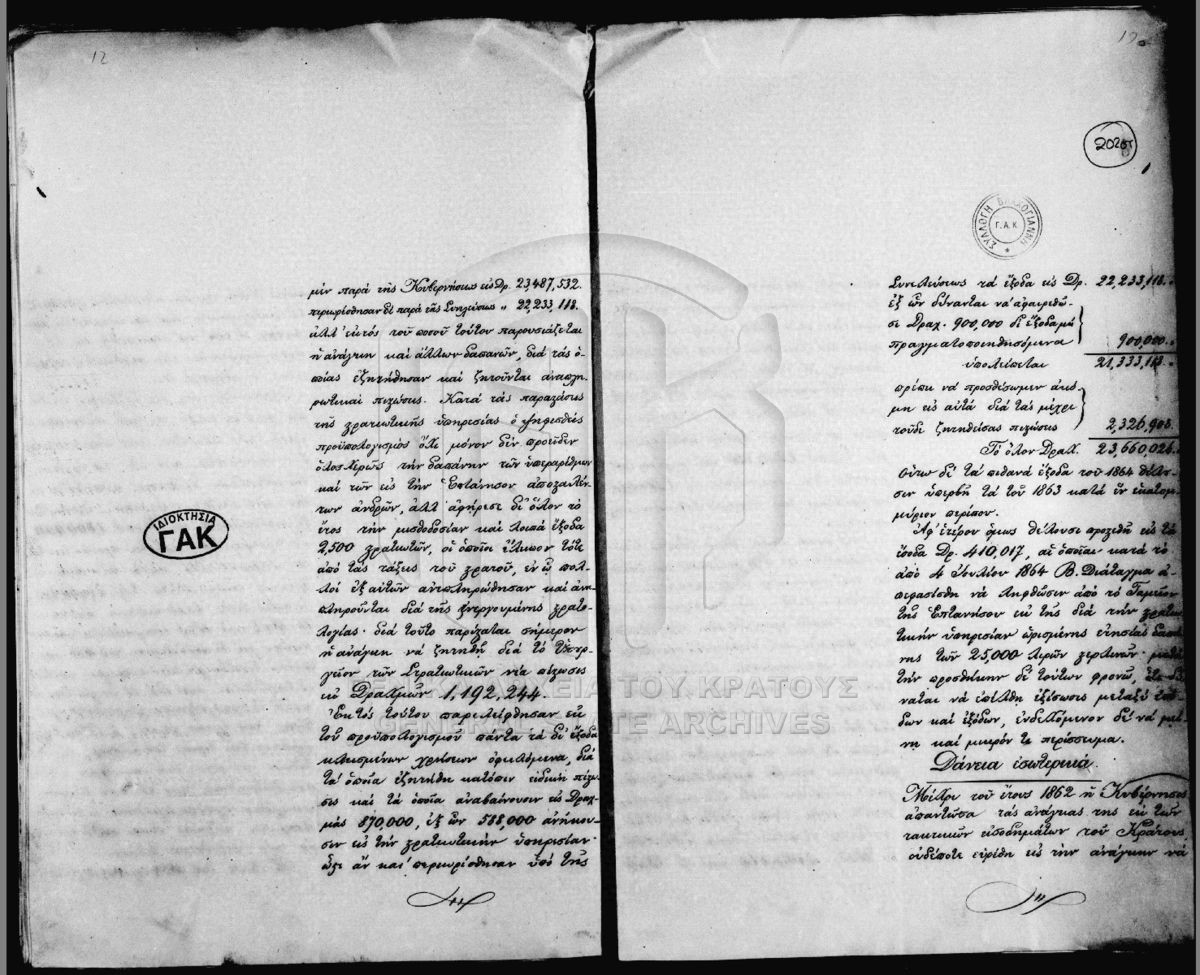 12
μὲν παρὰ τῆς Κυβερνήσεως εἰς Δρ. 23,487,532.
περιωρίσθησαν δὲ παρὰ τῆς Συνελεύσεως „ 22,233,118.
ἀλλ' ἐκτὸς τοῦ ποσοῦ τούτου παρουσιάζεται
ἡ ἀνάγκη καὶ ἄλλων δαπανῶν, διὰ τὰς ὁ-
ποίας ἐζητήθησαν καὶ ζητοῦνται ἀναπλη-
ρωτικαὶ πιστώσεις. Κατὰ τὰς παρατάσεις
τῆς στρατιωτικῆς ὑπηρεσίας ὁ ψηφισθεὶς
προϋπολογισμὸς ὄχι μόνον δὲν προεῖδεν
ὁλοσχερῶς τὴν δαπάνην τῶν ὑπεραρίθμων
καὶ τῶν εἰς τὴν Ἑπτάνησον ἀποσταλέν-
των ἀνδρῶν, ἀλλ' ἀφῄρεσε δι' ὅλον τὸ
ἔτος τὴν μισθοδοσίαν καὶ λοιπὰ ἔξοδα
2,500 στρατιωτῶν, οἱ ὁποῖοι ἔλειπον τότε
ἀπὸ τὰς τάξεις τοῦ στρατοῦ, ἐν ᾧ πολ-
λοὶ ἐξ αὐτῶν ἀνεπληρώθησαν καὶ ἀνα-
πληροῦνται διὰ τῆς ἐνεργουμένης στρατο-
λογίας· διὰ τοῦτο παρίσταται σήμερον
ἡ ἀνάγκη νὰ ζητηθῇ διὰ τὸ Ὑπουρ-
γεῖον τῶν Στρατιωτικῶν νέα πίστωσις
ἐκ Δραχμῶν 1,192,244.
Ἐκτὸς τούτου παρελείφθησαν ἐκ
τοῦ προϋπολογισμοῦ πάντα τὰ δι' ἔξοδα
κλεισμένων χρήσεων ὀφειλόμενα, διὰ
τὰ ὁποῖα ἐζητήθη κατόπιν εἰδικὴ πίστω-
σις καὶ τὰ ὁποῖα ἀναβαίνουσιν εἰς Δραχ-
μὰς 870,000, ἐξ ὧν 588,000 ἀνήκου-
σιν εἰς τὴν στρατιωτικὴν ὑπηρεσίαν·
ὥστε ἂν καὶ περιωρίσθησαν ὑπὸ τῆς
ΙΔΙΟΚΤΗΣΙΑ
ΓΑΚ
202
ΣΥΛΛΟΓΗ ΒΛΑΧΟΓΙΑΝΝΗ
Γ.Α.Κ.
Συνελεύσεως τὰ ἔξοδα εἰς Δρ. 22,233,118.
ἐξ ὧν δύνανται νὰ ἀφαιρεθῶ-
σι Δραχ. 900,000 δι' ἔξοδα μὴ
πραγματοποιηθησόμενα 900,000.
ὑπολείπεται 21,333,118.
πρέπει νὰ προσθέσωμεν ἀκό-
μη εἰς αὐτὰ διὰ τὰς μέχρι
τοῦδε ζητηθείσας πιστώσεις 2,326,908.
Τὸ ὅλον Δραχ. 23,660,026.
Οὕτω δὲ τὰ πιθανὰ ἔξοδα τοῦ 1864 θέλου-
σιν ὑπερβῆ τὰ τοῦ 1863 κατὰ ἓν ἑκατομ-
μύριον περίπου.
Ἀφ' ἑτέρου ὅμως θέλουσι προστεθῆ εἰς τὰ
ἔσοδα Δρ. 410,017, αἱ ὁποῖαι κατὰ τὸ
ἀπὸ 4 Ἰουλίου 1864 Β. Διάταγμα ἀ-
πεφασίσθη νὰ ληφθῶσιν ἀπὸ τὸ Ταμεῖον
τῆς Ἑπτανήσου ἐκ τῆς διὰ τὴν στρατιω-
τικὴν ὑπηρεσίαν ὡρισμένης ἐτησίας δαπά-
νης τῶν 25,000 λιρῶν στερλινῶν· μετὰ
τὴν προσθήκην δὲ τούτων φρονῶ, ὅτι δύ-
ναται νὰ ἐπέλθῃ ἐξίσωσις μεταξὺ ἐσό-
δων καὶ ἐξόδων, ἐνδεχόμενον δὲ νὰ μεί-
νῃ καὶ μικρόν τι περίσσευμα.
Δάνεια ἐσωτερικά.
Μέχρι τοῦ ἔτους 1862 ἡ Κυβέρνησις
ἀπαντῶσα τὰς ἀνάγκας της ἐκ τῶν
τακτικῶν εἰσοδημάτων τοῦ Κράτους
οὐδέποτε εὑρέθη εἰς τὴν ἀνάγκην νὰ
ΕΙΑ ΤΟΥ ΚΡΑΤΟΥΣ
TE ARCHIVES